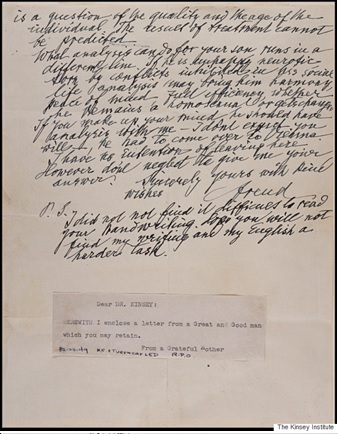 is a question of the quality and the age of the
individual. The result of treatment cannot
be predicted.
What analysis can do for your son runs in a
different line. If he is unhappy, neurotic,
torn by conflicts, inhibited in his social
life, analysis may bring him harmony,
peace of mind, full efficiency whether
he remains a homosexual or gets changed.
If you make up your mind, he should have
analysis with me — I don't expect you
will —, he has to come over to Vienna.
I have no intention of leaving here.
However don't neglect to give me your
answer.
Sincerely yours with kind
wishes
Freud
P. S.
I did not find it difficult to read
your handwriting. Hope you will not
find my writing and my English a
harder task.
Dear DR. KINSEY:
HEREWITH I enclose a letter from a Great and Good man
which you may retain.
From a Grateful Mother
The Kinsey Institute